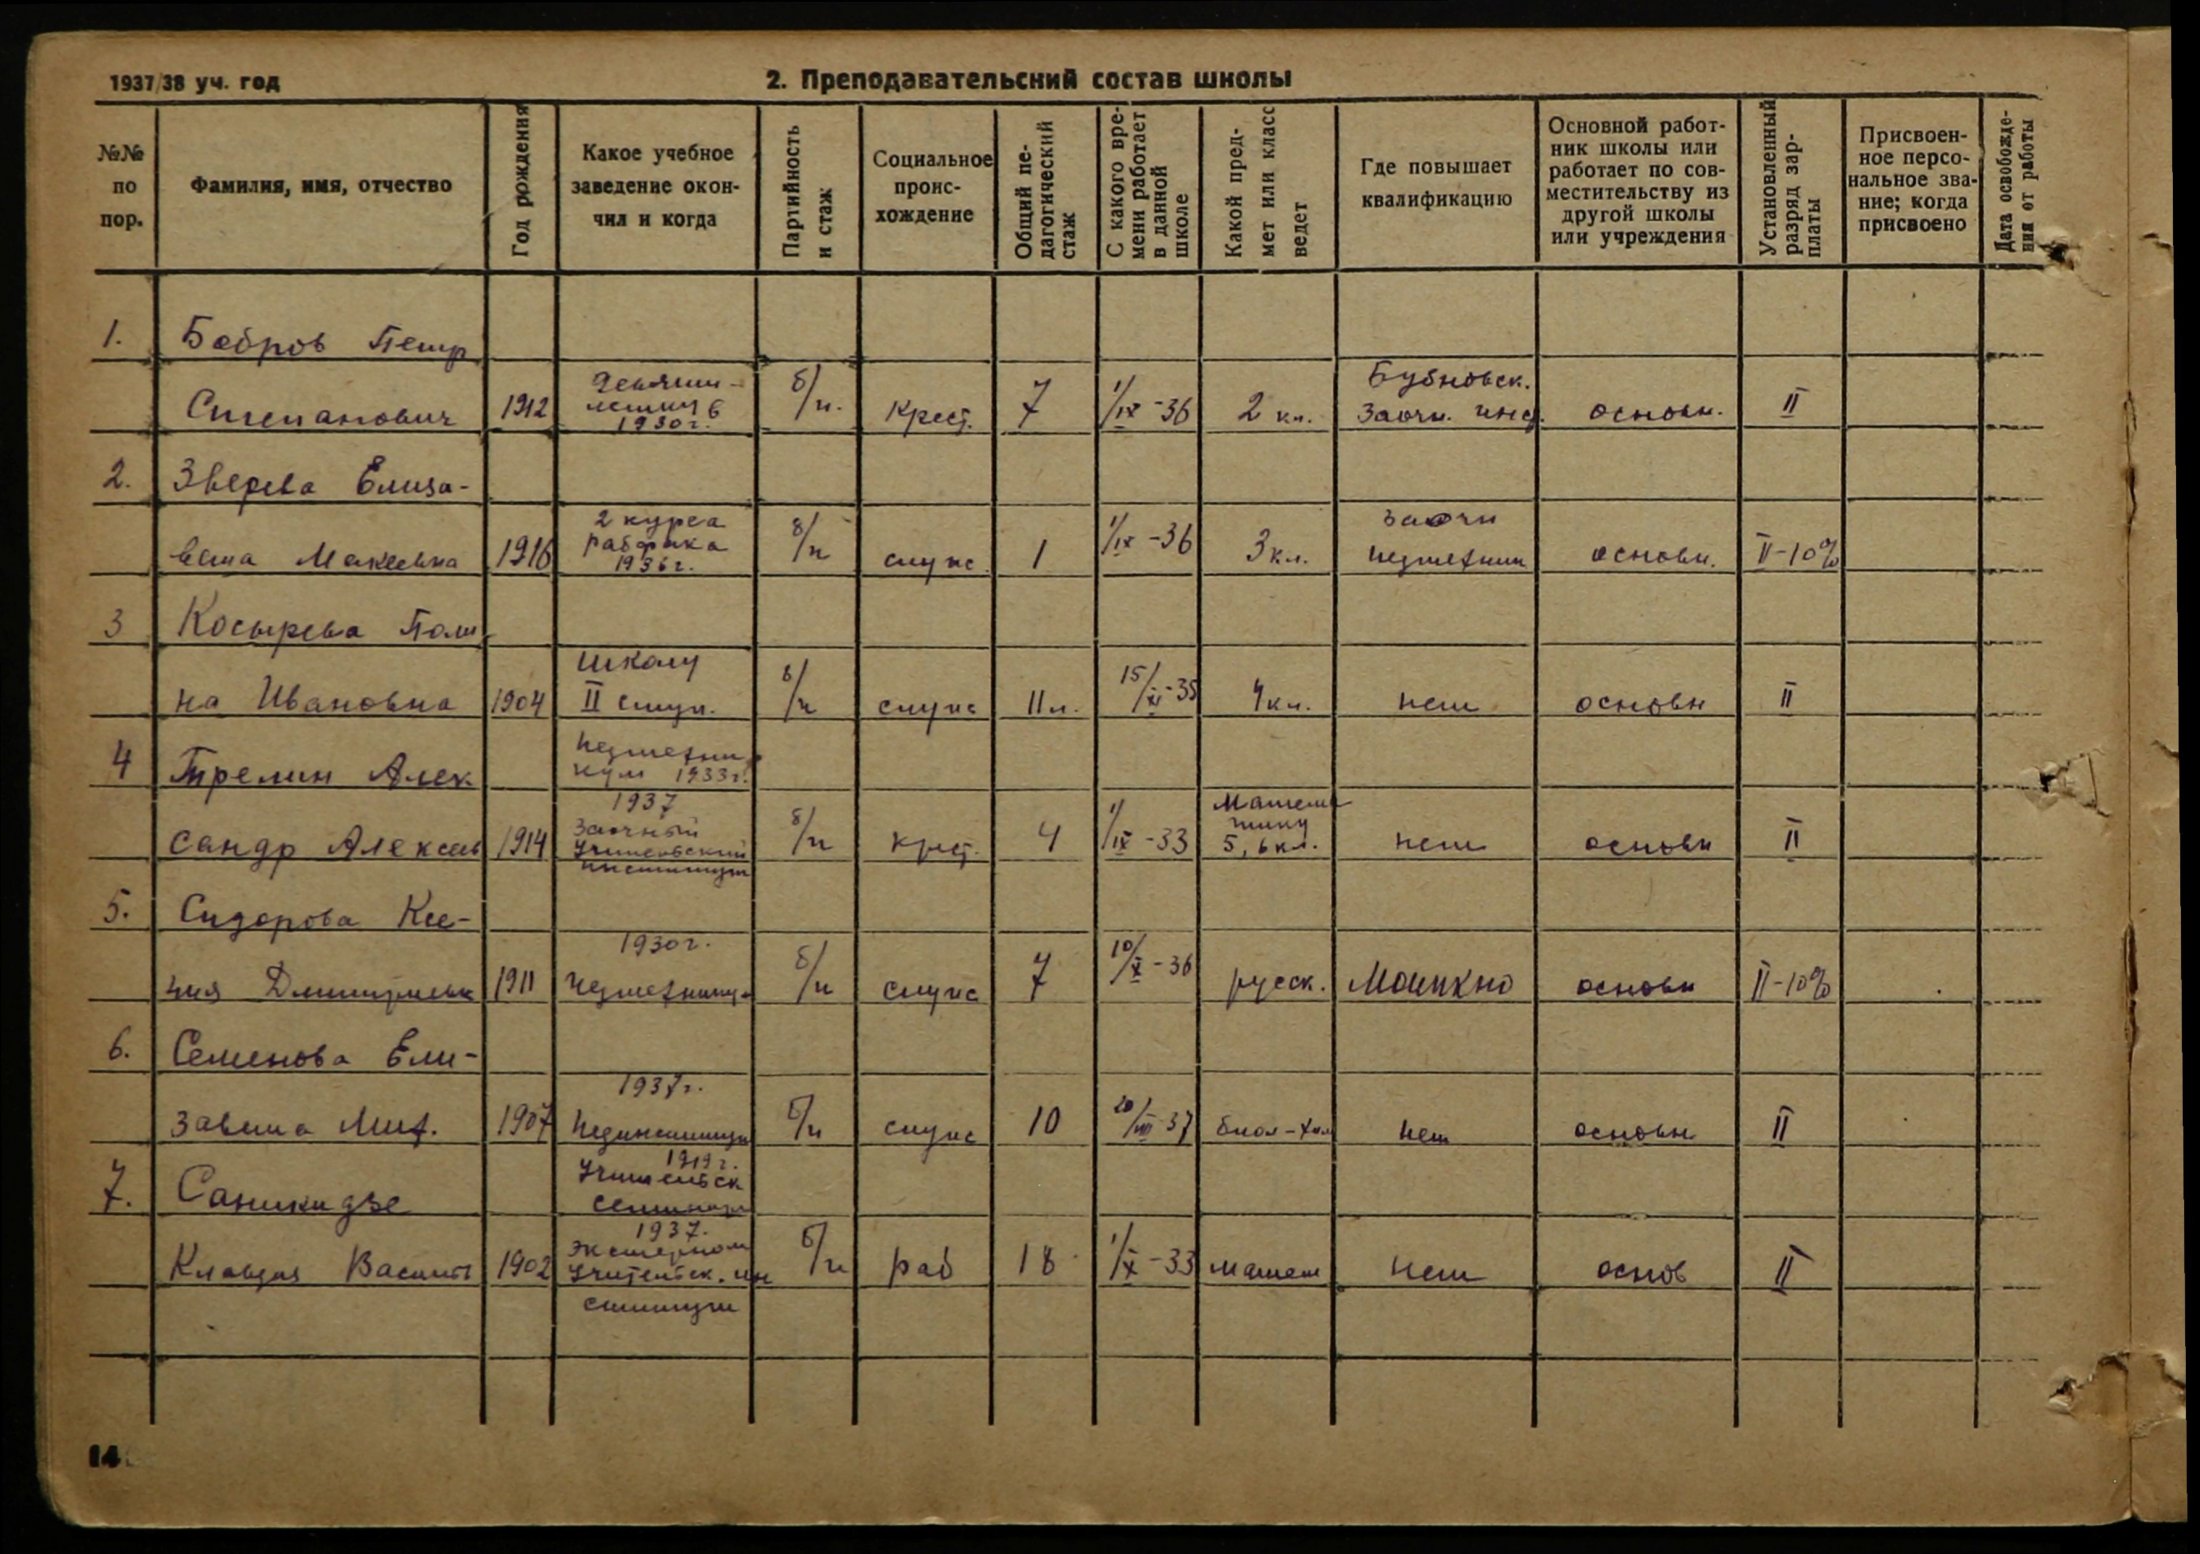 1937/38 уч. год
2. Преподавательский состав школы
№№ по пор.
Фамилия, имя, отчество
Год рождения
Какое учебное заведение окончил и когда
Партийность и стаж
Социальное происхождение
Общий педагогический стаж
С какого времени работает в данной школе
Какой предмет или класс ведет
Где повышает квалификацию
Основной работник школы или работает по совместительству из другой школы или учреждения
Установленный разряд зарплаты
Присвоенное персональное звание; когда присвоено
Дата освобождения от работы
1. Бобров Петр
Степанович 1912 1930г. б/п. Крест. 7 1/IX-36 2 кл. Бубновск. Заочн. инс. основн. II
2. Зверева Елиза-
вета Мокеевна 1916 2 курса рабфака 1936г. б/п служ. 1 1/IX-36 3 кл. заочн педтехник основн. II-10%
3 Косырева Поли
на Ивановна 1904 школу II ступ. б/п служ 11 л. 15/XI-35 4 кл. нет основн II
4 Трелин Алек педтехни
кум 1933г.
сандр Алексеев 1914 1937 Заочный Учительский институт б/п крест. 4 1/IX-33 Матема тику 5, 6 кл. нет основн II
5. Сидорова Ксе-
ния Дмитриевн 1911 1930г. педтехникум б/п служ 7 10/X-36 русск. основн II-10%
6. Семенова Ели-
завета Мих. 1907 1937г. Пединститут б/п служ 10 20/VIII-37 биол-хим нет основн II
7. Саникидзе 1919г. Учительск семинар
Клавдия Васильев 1902 1937. Экстерном Учительск. ин б/п раб 18 1/X-33 матем нет основ II
ститут
14